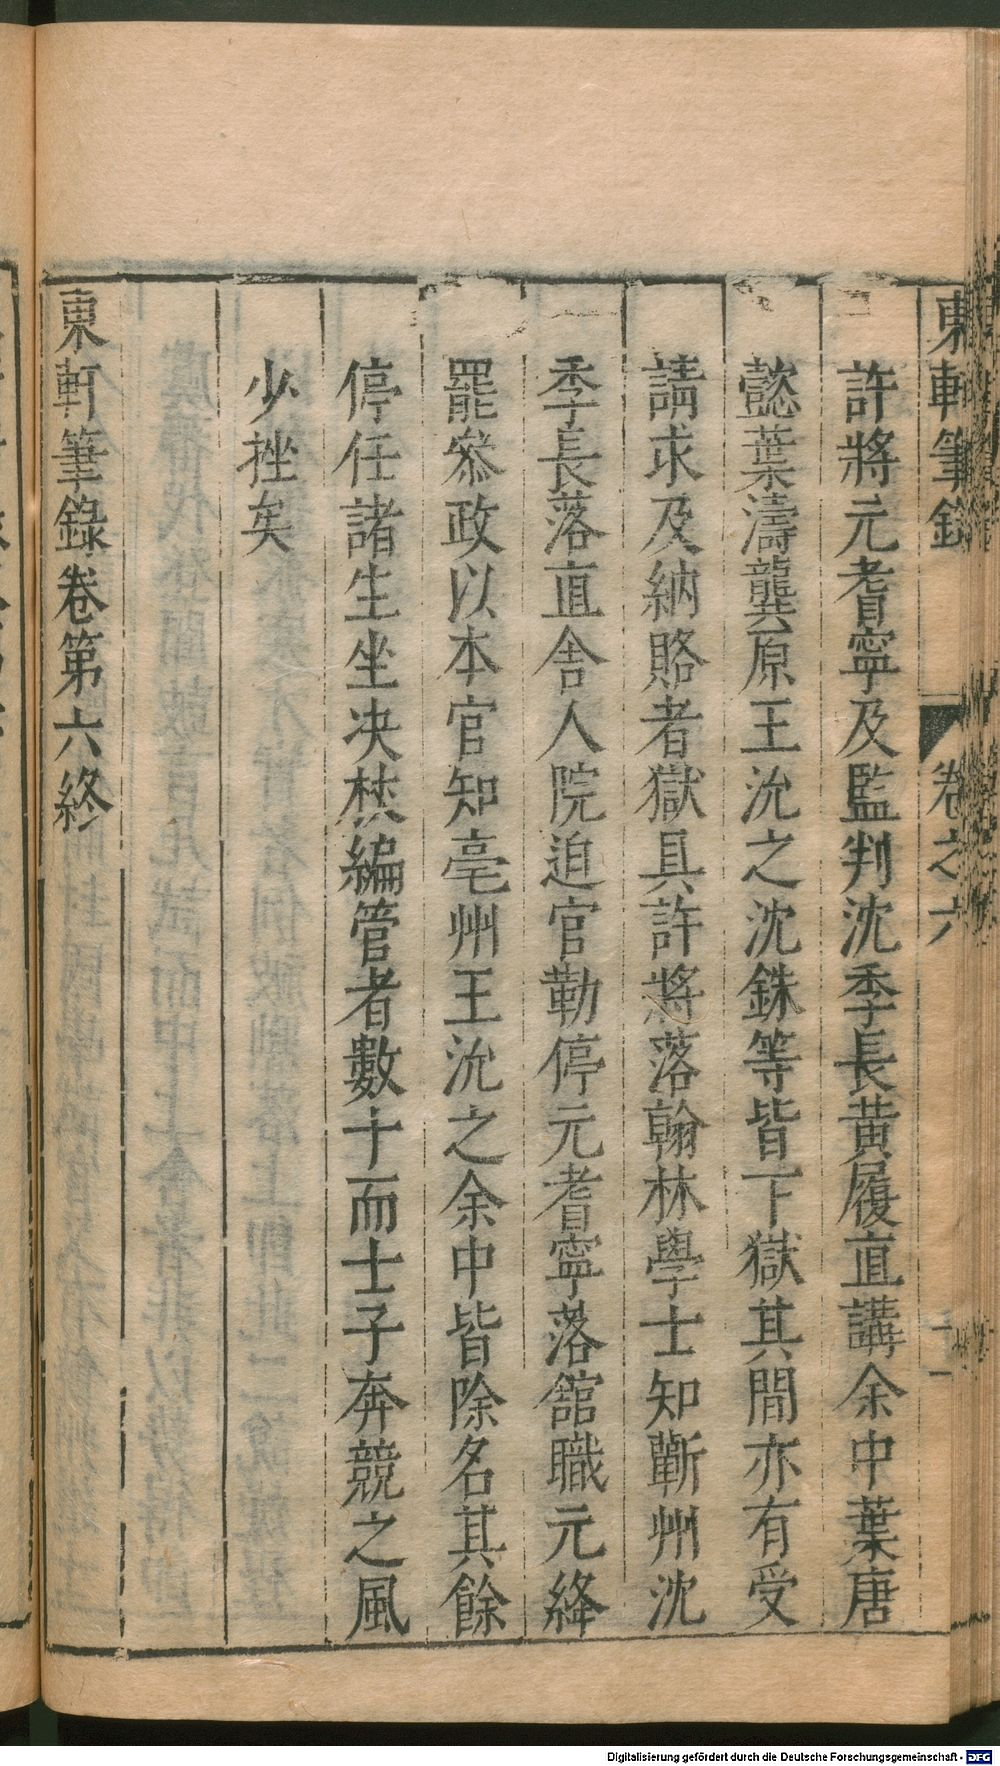 東軒筆錄 卷之六
許將元耆寧及監判沈季長黃履直講余中葉唐
懿葉濤龔原王沇之沈銖等皆下獄其間亦有受
請求及納賂者獄具許將落翰林學士知蘄州沈
季長落直舍人院追官勒停元耆寧落館職元絳
罷叅政以本官知亳州王沇之余中皆除名其餘
停任諸生坐决杖編管者數十而士子奔競之風
少挫矣
東軒筆錄卷第六終
Digitalisierung gefördert durch die Deutsche Forschungsgemeinschaft - DFG